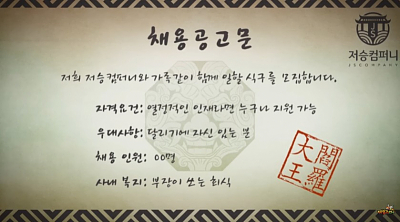 채용공고문
저승컴퍼니
JESCOMPANY
저희 저승컴퍼니와 가족같이 함께 일할 식구를 모집합니다.
자격요건: 열정적인 인재라면 누구나 지원 가능
우대사항: 달리기에 자신 있는 분
채용 인원: 00명
사내 복지: 부장이 쏘는 회식
閻羅
大王